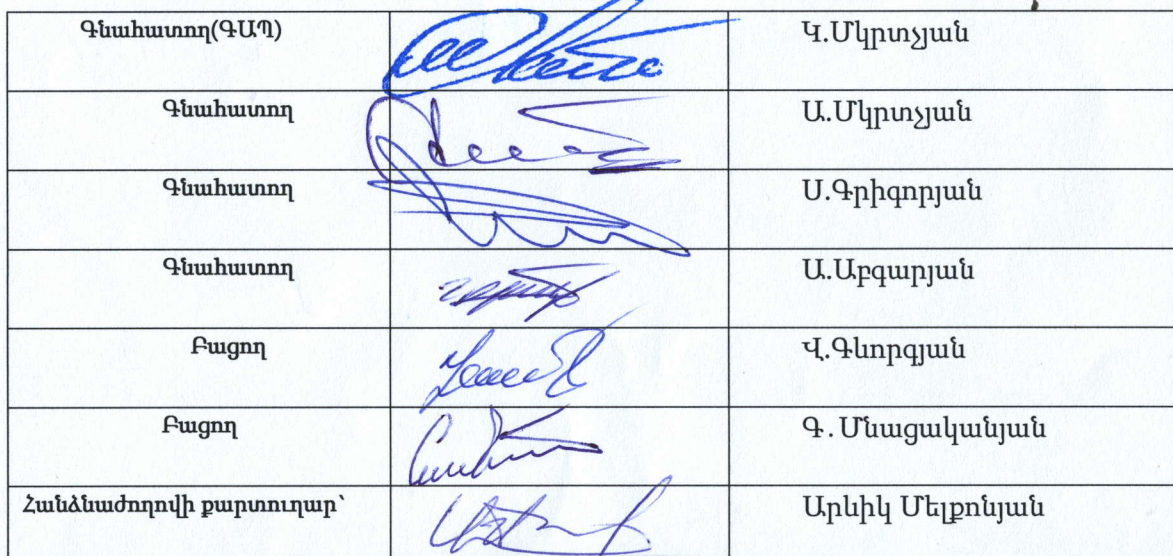 Գնահատող(ԳԱՊ) Կ.Մկրտչյան
Գնահատող Ա.Մկրտչյան
Գնահատող Ս.Գրիգորյան
Գնահատող Ա.Աբգարյան
Բացող Վ.Գևորգյան
Բացող Գ.Մնացականյան
Հանձնաժողովի քարտուղար՝ Արևիկ Մելքոնյան